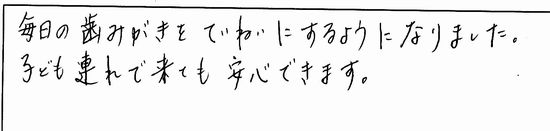 毎日の歯みがきをていねいにするようになりました。
子ども連れで来ても安心できます。